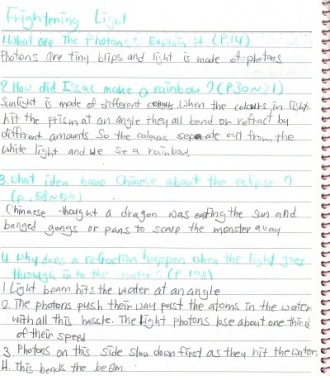 Frightening Light
1. What are The Photons? Explain it (P.14)
Photons are tiny blips and light is made of photons
2. How did Issac make a rainbow? (P.30~31)
Sunlight is made of different colours when the colours in light
hit the prism at an angle they all bend or refract by
different amounts So the colours seperate out from the
white light and we se a rainbow.
3. What idea have Chinese about the eclipse?
(P.58~59)
Chinese thought a dragon was eating the sun and
banged gongs or pans to scare the monster away
4. Why does a refraction happen when the light goes
through in to the water? (P.104)
1. Light beam hits the water at an angle
2. The photons push their way past the atoms in the water
with all this hassle. The light photons lose about one third
of their speed
3. Photons on this side slow down first as they hit the water.
4. This bends the beam